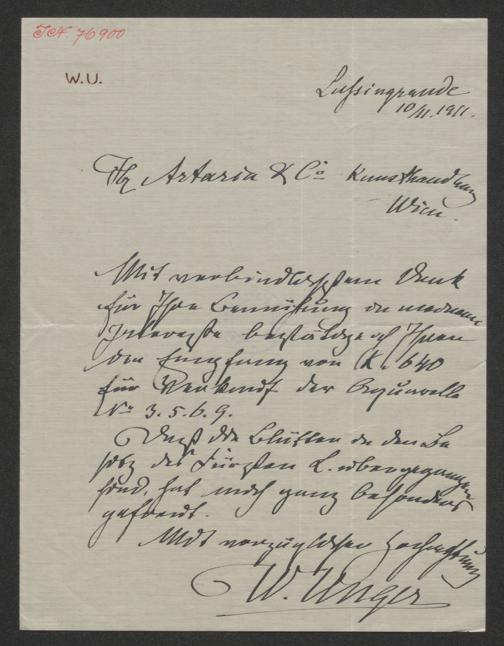 I.N. 76900
W.U.
Lussingrande
10/11.1911.
Artaria & Co Kunsthandlung
Wien.
Mit verbindlichstem Dank
für Ihre Bemühung in meinem
Interesse bestätige ich Ihnen
den Empfang von K. 640
für Verkauf der Aquarelle
No 3. 5. 6. 9.
Daß die Blätter in den Be
sitz des Fürsten L. übergegangen
sind, hat mich ganz besonders
gefreut.
Mit vorzüglicher Hochachtung
W. Unger